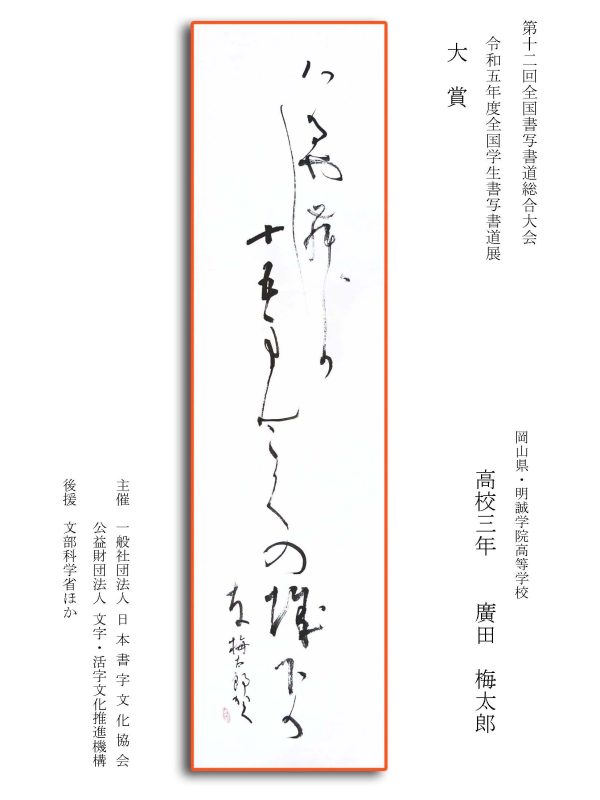 第十二回全国書写書道総合大会
令和五年度全国学生書写書道展
大賞
岡山県・明誠学院高等学校
高校三年 廣田 梅太郎
十五まんこくの城下
梅太郎かく
主催 一般社団法人 日本書字文化協会
公益財団法人 文字・活字文化推進機構
後援 文部科学省ほか